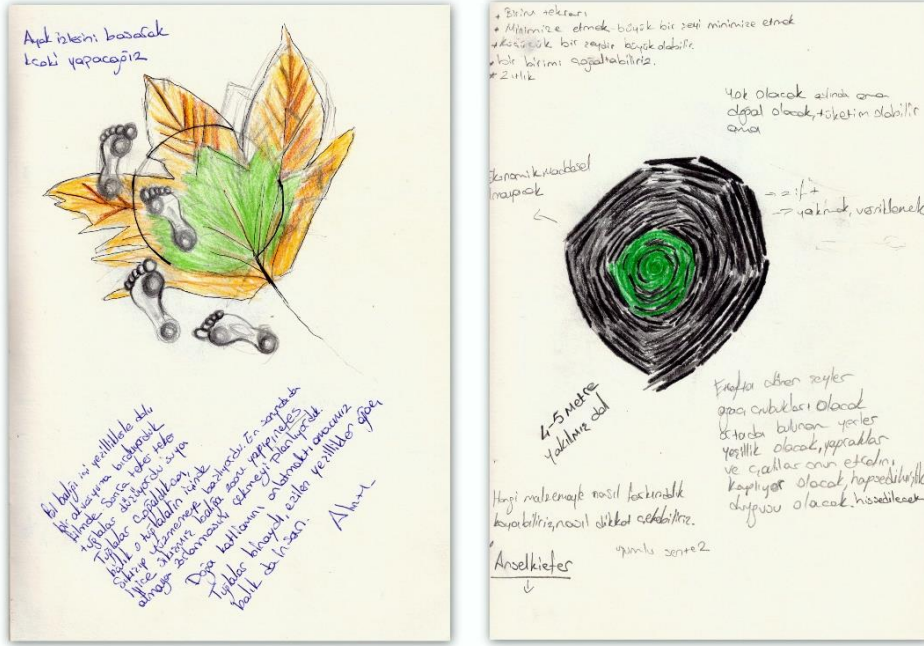 Ayak izlerini basarak
baskı yapacağız
Bil balığı içi yeşilliklerle dolu
bir akvaryuma bırakıyorduk
filmde sonra teker teker
tuğlalar düşüyordu suya
Tuğlalar çoğaldıkcan,
balık o tuğlaların içinde
Sıkışıp yüzmemeye başlıyordu. En sonunda da
iyice sıkışınız balığa son yapıp nefes
almaya zorlanmasını çekmeyi planlıyorduk.
Doğa katliamını anlatmaktı amacımız
Tuğlalar binaydı, ezilen yeşillikler ağaç,
balık da insan.
+ Birim tekrarı
• Minimize etmek - büyük bir şeyi minimize etmek
• Küçücük bir şeydir büyük olabilir.
• bir birimi çoğaltabiliriz.
* Zıtlık
Yok olacak aslında ama
doğal olacak, tüketim olabilir
ama
Ekonomik, maddesel
→ yakmak, yeniklemek
4-5 Metre
yakılmış dal
Etrafta dönen şeyler
ağaç çubukları olacak
ortada bulunan yerler
yeşillik olacak, yapraklar
ve çıtalar onun etrafını
kaplıyor olacak, hapsedilmişlik
duygusu olacak. hissedilecek
Hangi malzemeyle nasıl farkındalık
koyabiliriz, nasıl dikkat çekebiliriz.
Anselkiefer